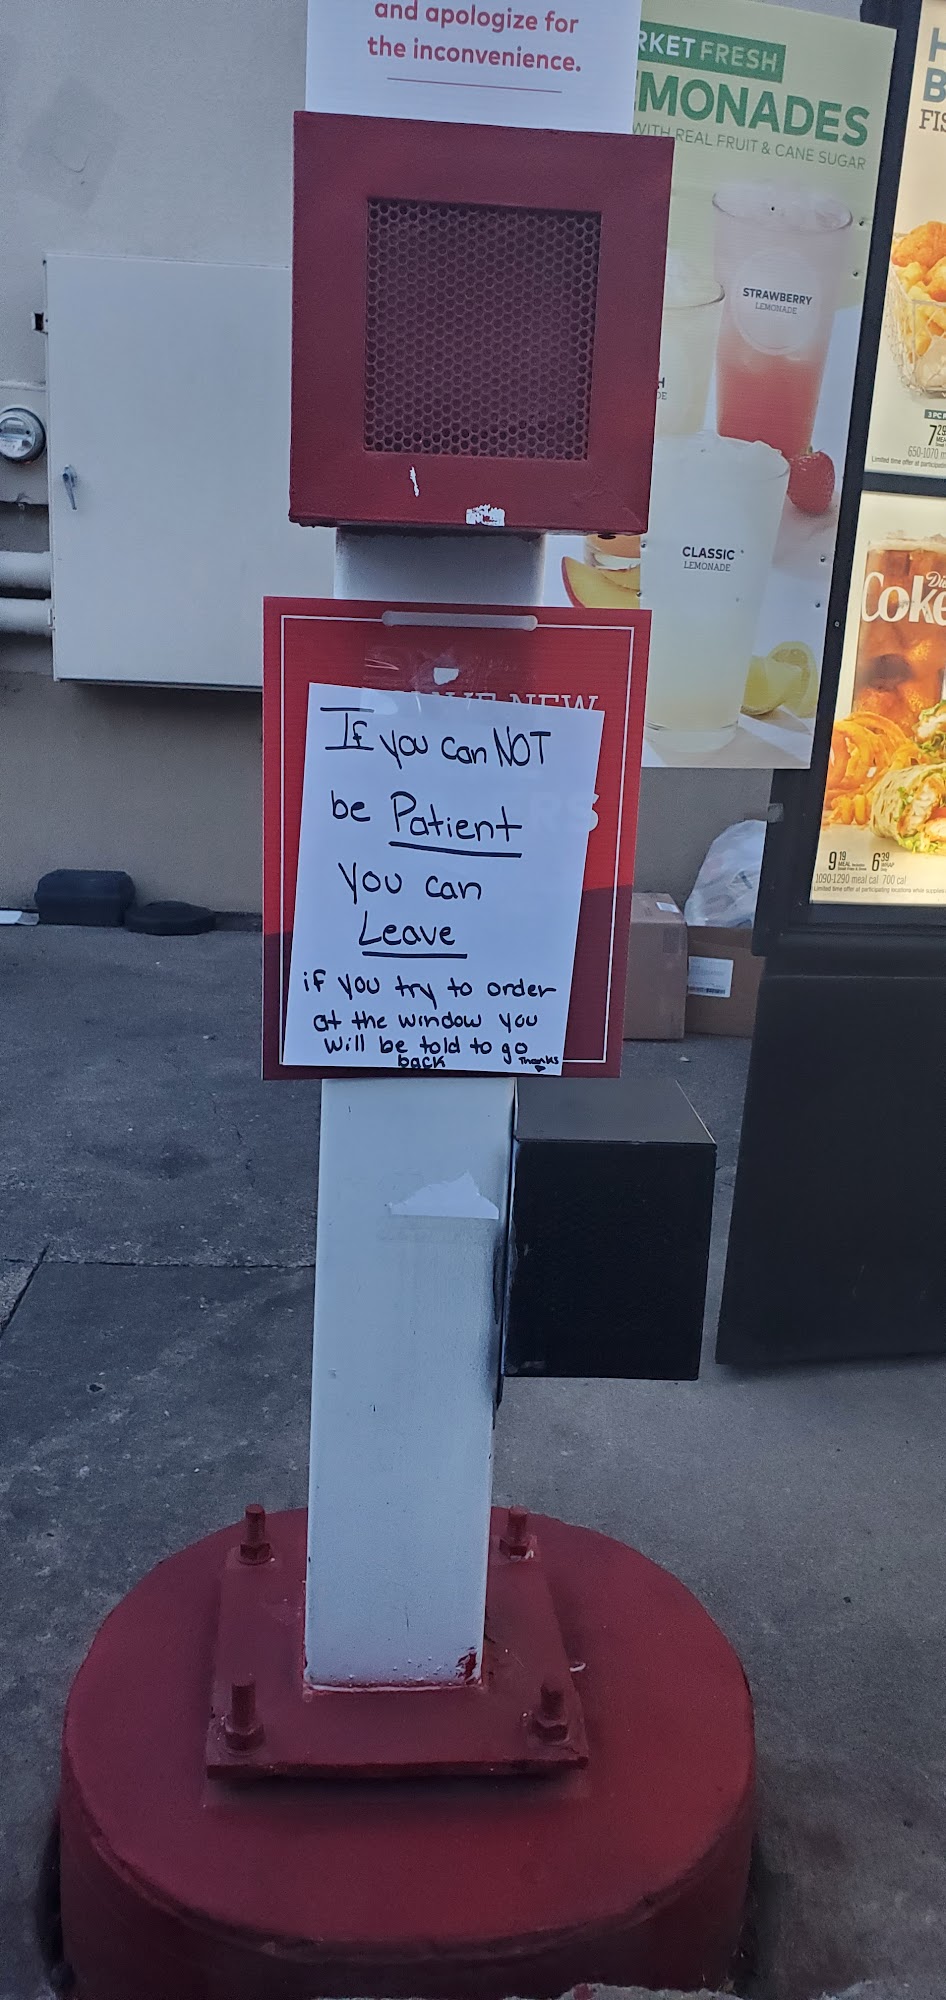 and apologize for
the inconvenience.
FRESH
WITH REAL FRUIT & CANE SUGAR
STRAWBERRY
LEMONADE
CLASSIC
LEMONADE
Coke
9 19 MEAL 6 39 WRAP
1090-1290 meal cal 700 cal
NEW
If you can NOT
be Patient
you can
Leave
if you try to order
at the window you
will be told to go
back
Thanks